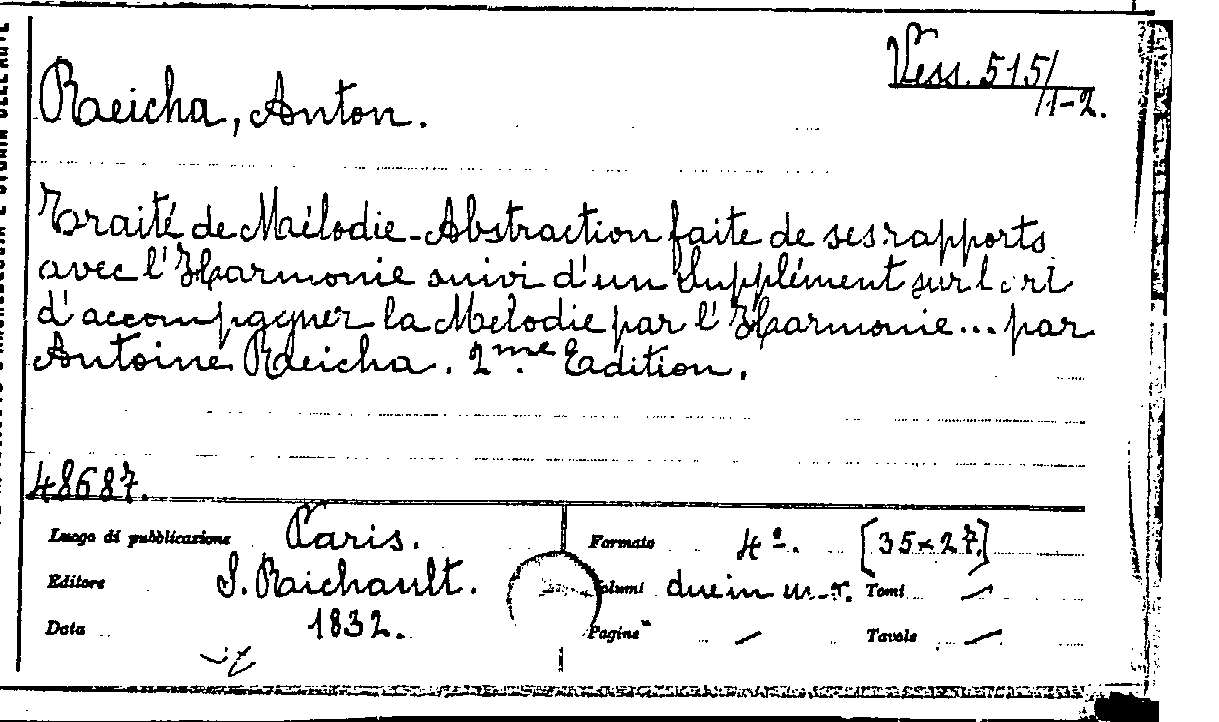 Reicha, Anton.
Vess. 515/1-2.
Traité de Mélodie-Abstraction faite de ses rapports
avec l'Harmonie suivi d'un Supplément sur l'art
d'accompagner la Melodie par l'Harmonie... par
Antoine Reicha. 2me. Edition.
48687.
Luogo di pubblicazione Paris.
Formato 4º. [35×27]
Editore S. Raichault.
Volumi due in un v. Tomi —
Data 1832.
Pagine — Tavole —